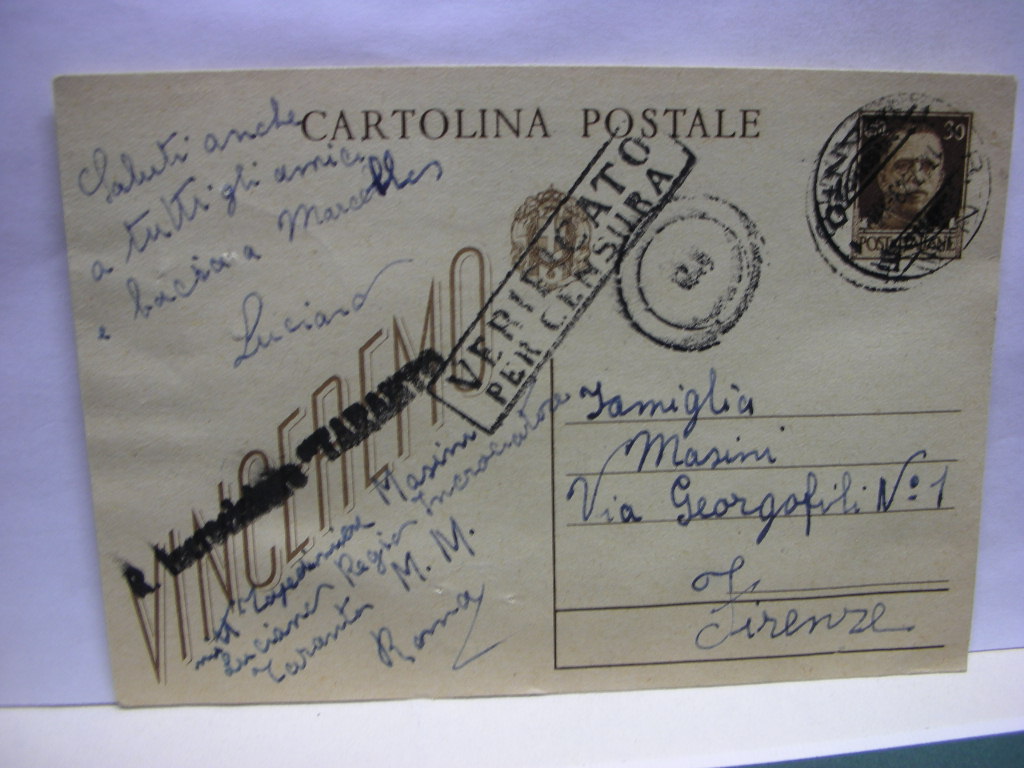 CARTOLINA POSTALE
30
POSTE ITALIANE
Saluti anche
a tutti gli amici
e bacioni a Marcello
Luciano
VERIFICATO
PER CENSURA
VINCEREMO
R. TARANTO
Masini
Luciano Regio Incrociatore
Taranto M. M.
Roma
Famiglia
Masini
Via Georgofili Nº 1
Firenze